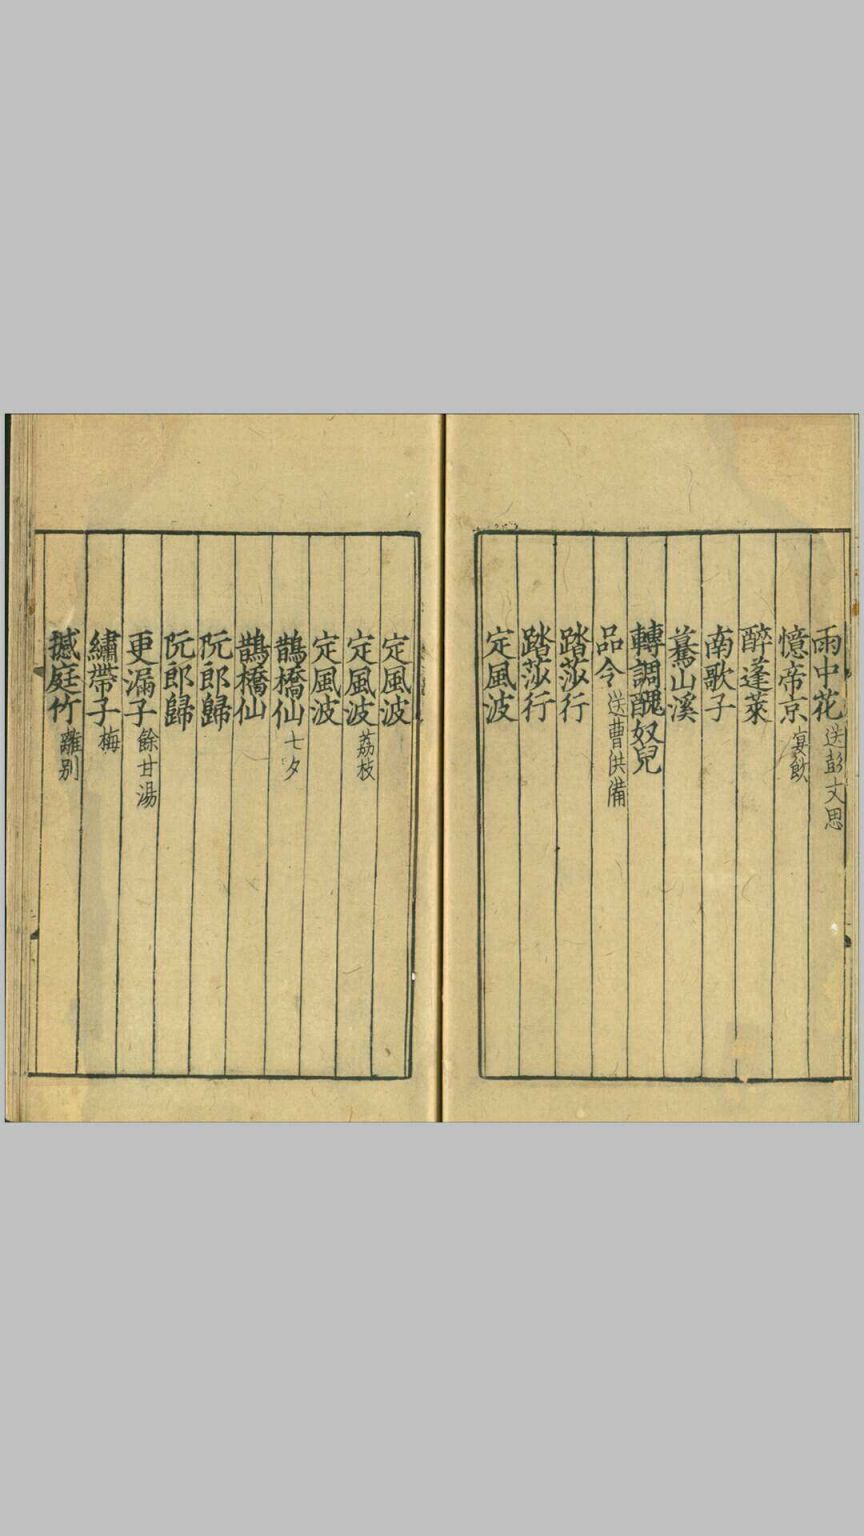 雨中花 送彭文思
憶帝京 宴飲
醉蓬萊
南歌子
驀山溪
轉調醜奴兒
品令 送曹供備
踏莎行
踏莎行
定風波
定風波
定風波 荔枝
定風波
鵲橋仙 七夕
鵲橋仙
阮郎歸
阮郎歸
更漏子 餘甘湯
繡帶子 梅
撼庭竹 離别